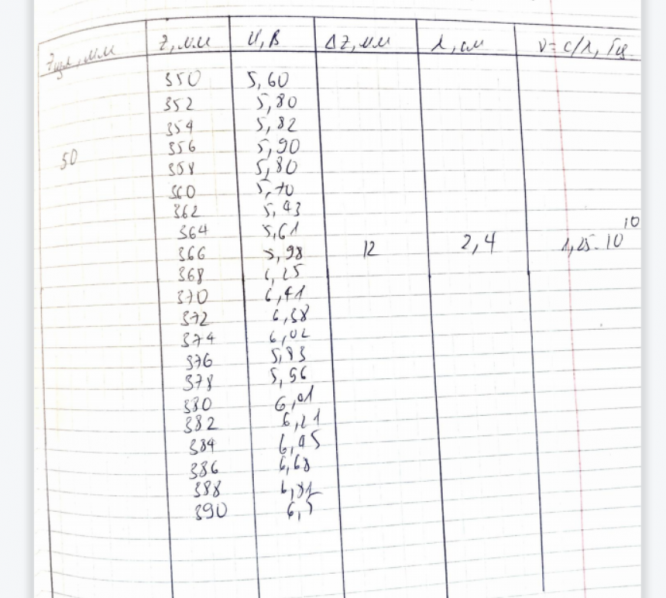 Z, мм U, В ΔZ, мм λ, см ν = c/λ, Гц
350 5,60
352 5,80
354 5,82
356 5,90
50
358 5,80
360 5,70
362 5,43
364 5,61
366 5,98 12 2,4 1,25·10^10
368 6,25
370 6,41
372 6,38
374 6,02
376 5,83
378 5,56
380 6,01
382 6,21
384
386 6,68
388
390 6,5